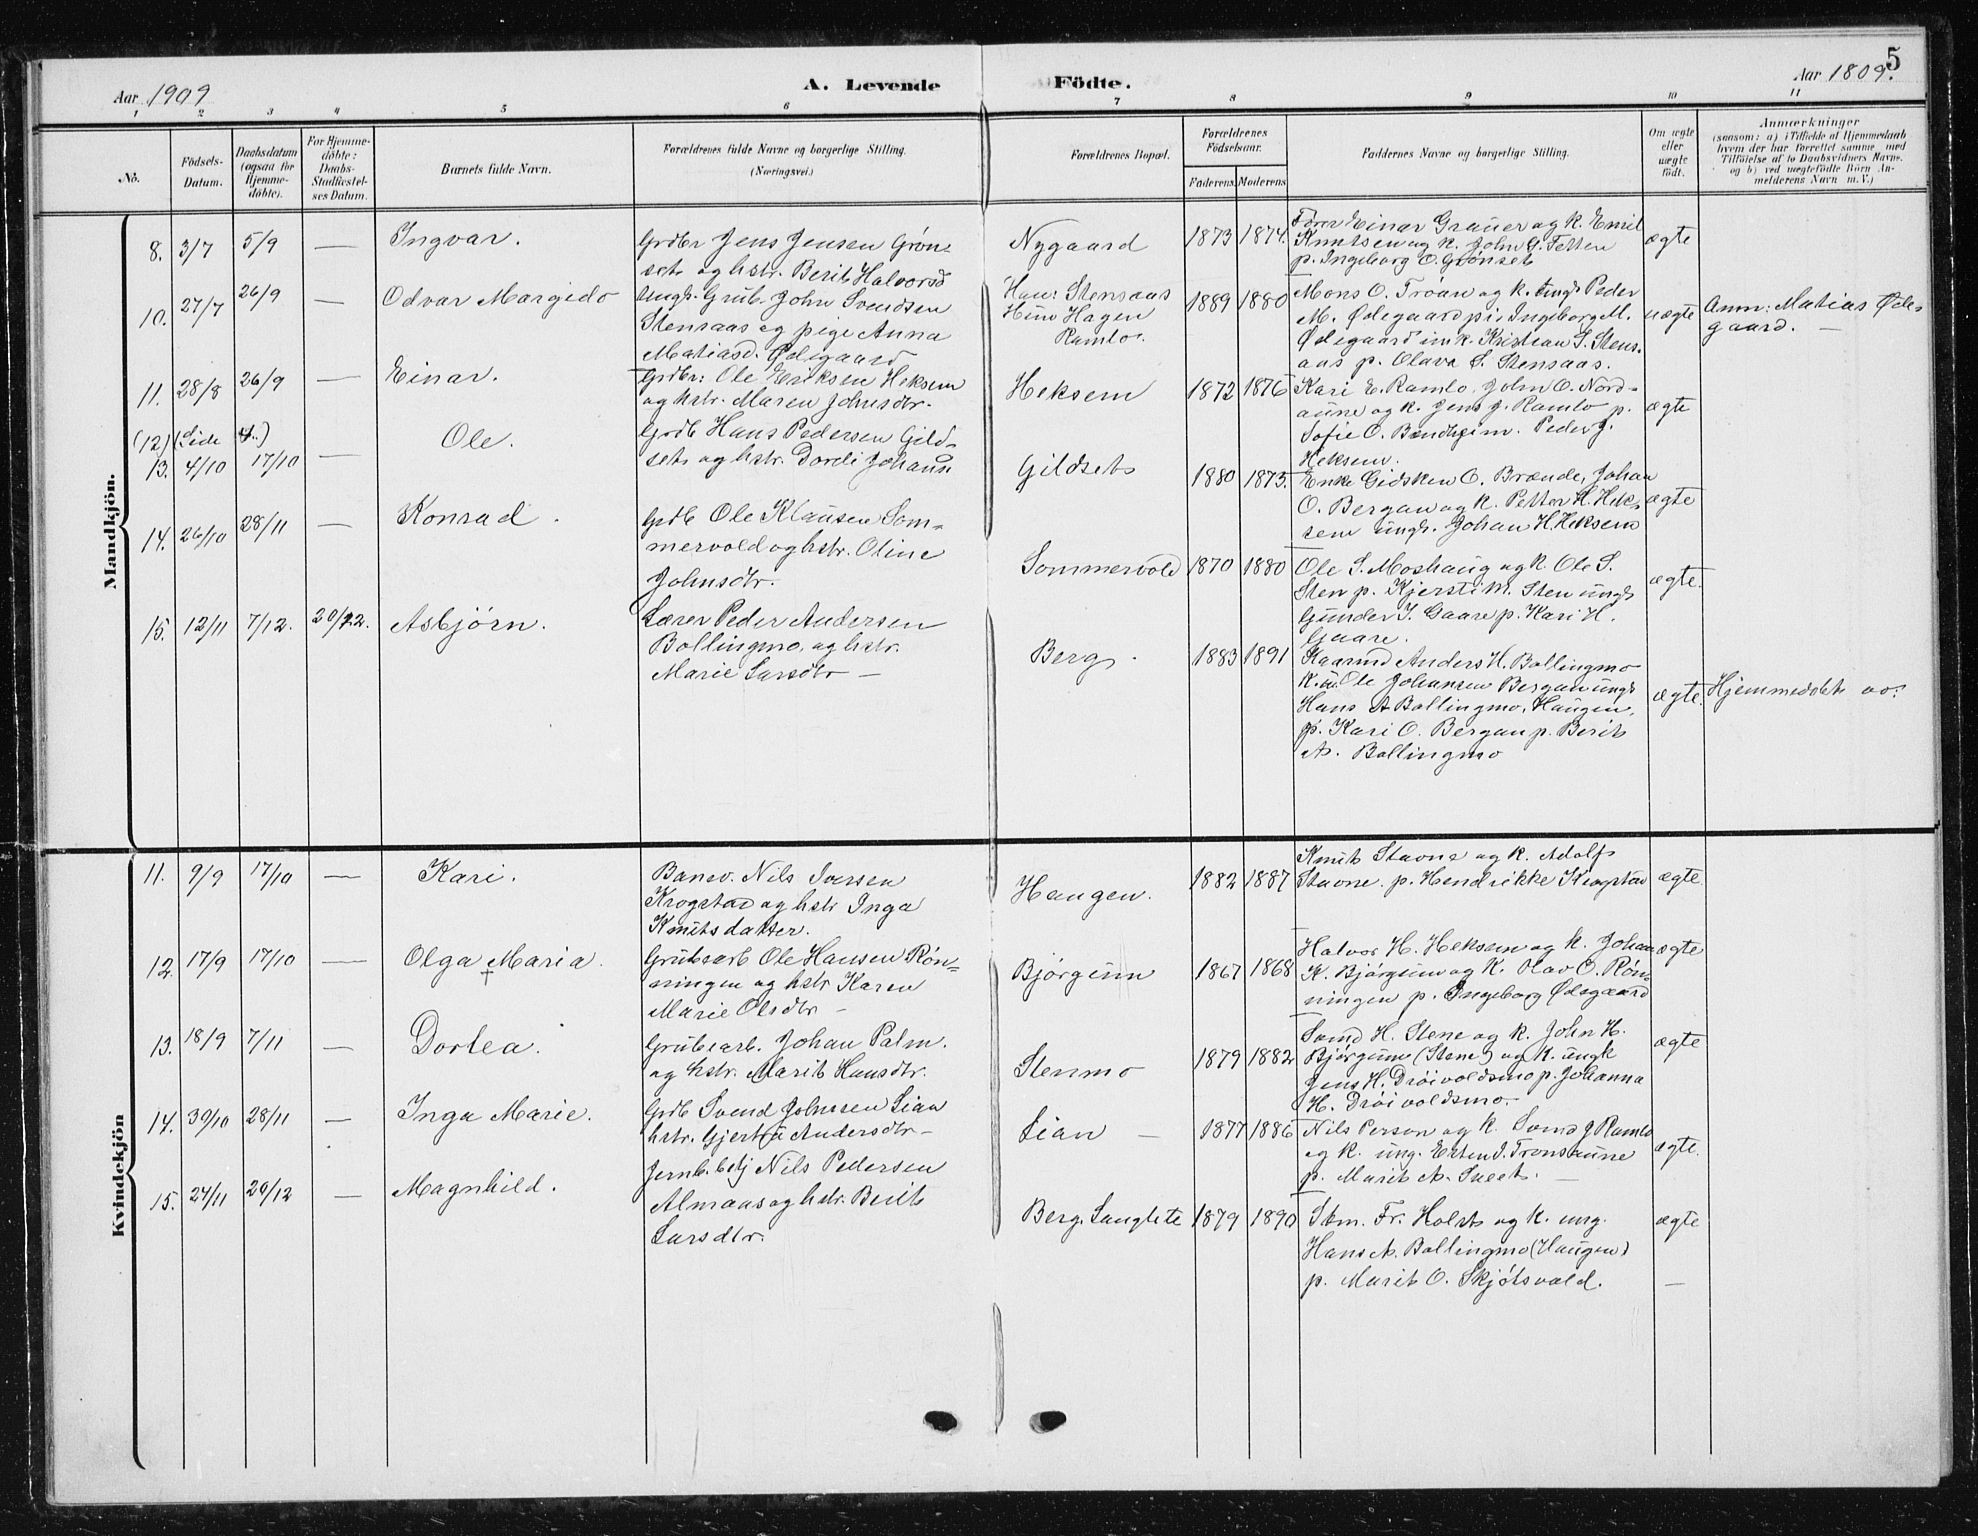 5
Aar 1909
A. Levende
Födte.
Aar 1809.
1 2 3 4 5 6 7 8 9 10 11
No.
Födsels-
Datum.
Daabsdatum
(ogsaa for
Hjemme-
döbte).
For Hjemme-
döbte:
Daabs-
Stadfæstel-
ses Datum.
Barnets fulde Navn.
Forældrenes fulde Navne og borgerlige Stilling.
(Næringsvei.)
Forældrenes Bopæl.
Forældrenes
Födselsaar.
Faderens. Moderens
Faddernes Navne og borgerlige Stilling.
Om ægte
eller
uægte
födt.
Anmærkninger
(saasom: a) i Tilfælde af Hjemmedaab
hvem der har forrettet samme med
Tilföielse af to Daabsvidners Navne.
og b) ved uægtefödte Börn An-
melderens Navn m. V.)
Mandkjön.
8. 3/7 5/9 — Ingvar.
Grdbr Jens Jensen Grøn-
set og hstr. Berit Halvorsd
Nygaard
1873 1874.
Einar Grauer og k. Emil
Knutsen og k. John G. Tetten
p. Ingeborg O. Grønset
ægte
10. 27/7 26/9 — Odvar Margido
Ungk. Grub. John Svendsen
Stensaas og pige Anna
Matiasd. Ødegaard
Han: Stensaas
Hun Hagen
Ramlo.
1889 1880
Mons O. Trøan og k. ungk Peder
M. Ødegaard pi. Ingeborg M.
Ødegaard k. Kristian S. Stens-
aas p. Olava S. Stensaas.
uægte
Anm: Matias Øde-
gaard. —
11. 28/8 26/9 — Einar.
Grdbr: Ole Eriksen Heksem
og hstr. Maren Johnsdtr.
Heksem
1872 1876
Kari E. Ramlo, John O. Nord-
aune og k. Jens J. Ramlo p.
Sofie O. Bendheim. Peder J.
Heksem.
ægte
(12) (Side 4.)
13. 4/10 17/10 — Ole.
Grdb Hans Pedersen Gild-
set og hstr. Dordi Johans
Gildset
1880 1875.
Enke Gidsken O. Brænde, Johan
O. Bergan og k. Petter H. Hek-
sem ungk. Johan H. Heksem
ægte
14. 26/10 28/11 — Konrad.
Grdb Ole Klausen Som-
mervold og hstr. Oline
Johnsdtr.
Sommervold
1870 1880
Ole S. Moshaug og k. Ole S.
Sten p. Kjersti M. Sten ungk
Gunder I. Gaare p. Kari H.
Gaare.
ægte.
15. 12/11 7/12. 20/12. Asbjørn.
Lærer Peder Andersen
Bollingmo, og hstr.
Marie Larsdtr —
Berg.
1883 1891
Anders H. Bollingmo
k. Ole Johansen Bergan ungk
Hans A Bollingmo, Haugen,
p. Kari O. Bergan p. Berit
A. Bollingmo
ægte.
Hjemmedøbt av:
Kvindekjön
11. 9/9 17/10 — Kari.
Banev. Nils Iversen
Krogstad og hstr Inga
Knutsdatter.
Haugen.
1882 1887
Knut Stavne og k. Adolf
Stavne. p. Hendrikke Krogstad
ægte.
12. 17/9 17/10 — Olga Maria.
†
Grubearb Ole Hansen Røn-
ningen og hstr Karen
Marie Olsdtr —
Bjørgum
1867 1868
Halvor H. Heksem og k. Johan
K. Bjørgum og k. Olav O. Røn-
ningen p. Ingeborg Ødegaard
ægte
13. 18/9 7/11 — Dortea.
Grubearb. Johan Palm.
og hstr. Marit Hansdtr.
Stenmo
1879 1882
Svend H. Stene og k. John H.
Bjørgum (Stene) og k. ungk
Jens H. Drøivoldsmo p. Johanna
H. Drøivoldsmo.
ægte
14. 30/10 28/11 — Inga Marie.
Grdb Svend Johnsen Lian
hstr. Gjertru Andersdtr—
Lian —
1877 1886
Nils Person og k. Svend J Ramlo
og k. ung. Esten I. Tronsaune
p. Marit A. —
ægte.
15. 24/11 26/12 — Magnhild.
Jernb. btj Nils Pedersen
Almaas og hstr. Berit
Larsdtr.
Berg, Langlete
1879 1890
Skm. Fr. Holst og k. ung.
Hans A. Bollingmo (Haugen)
p. Marit O. Skjøtsvold.
ægte
—